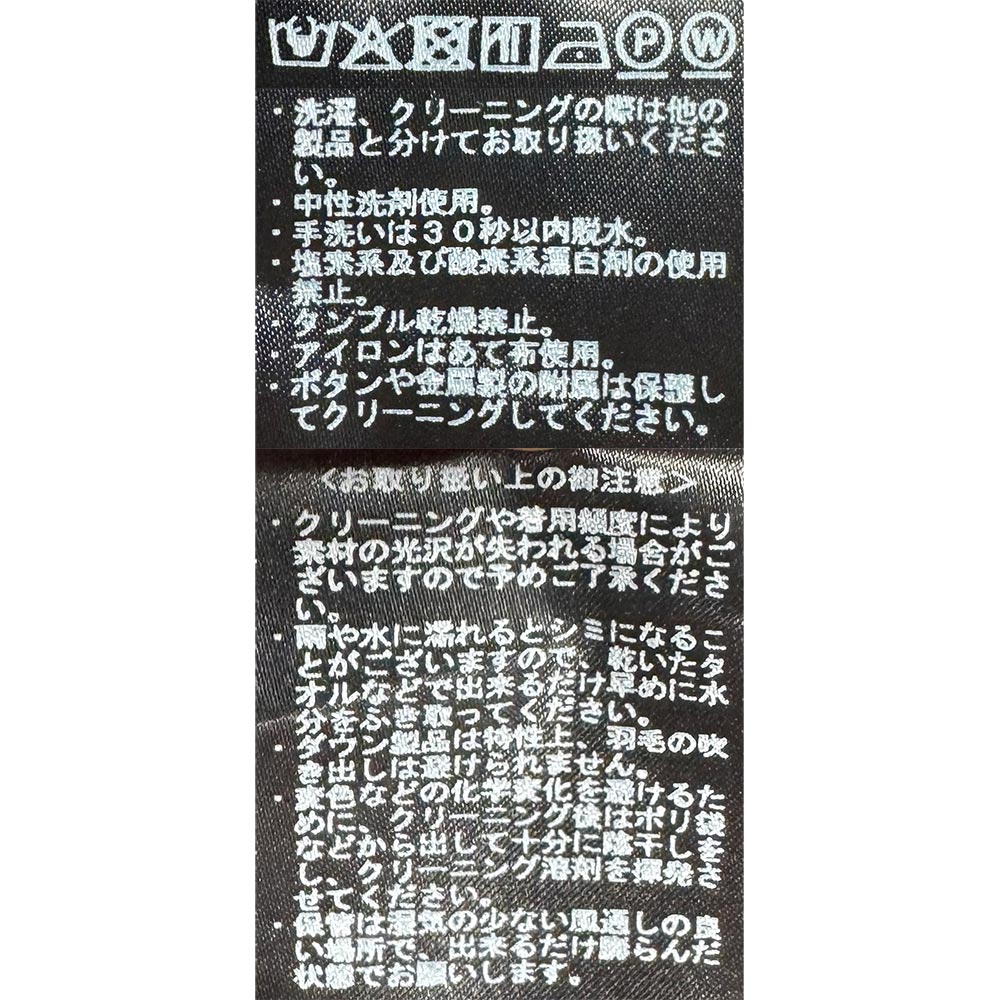 P W
・洗濯、クリーニングの際は他の
製品と分けてお取り扱いくださ
い。
・中性洗剤使用。
・手洗いは30秒以内脱水。
・塩素系及び酸素系漂白剤の使用
禁止。
・タンブル乾燥禁止。
・アイロンはあて布使用。
・ボタンや金属製の附属は保護し
てクリーニングしてください。
<お取り扱い上の御注意>
・クリーニングや着用頻度により
素材の光沢が失われる場合がご
ざいますので予めご了承くださ
い。
・雨や水に濡れるとシミになるこ
とがございますので、乾いたタ
オルなどで出来るだけ早めに水
分をふき取ってください。
・ダウン製品は特性上、羽毛の吹
き出しは避けられません。
・変色などの化学変化を避けるた
めに、クリーニング後はポリ袋
などから出して十分に陰干しを
し、クリーニング溶剤を揮発さ
せてください。
・保管は湿気の少ない風通しの良
い場所で、出来るだけ膨らんだ
状態でお願いします。